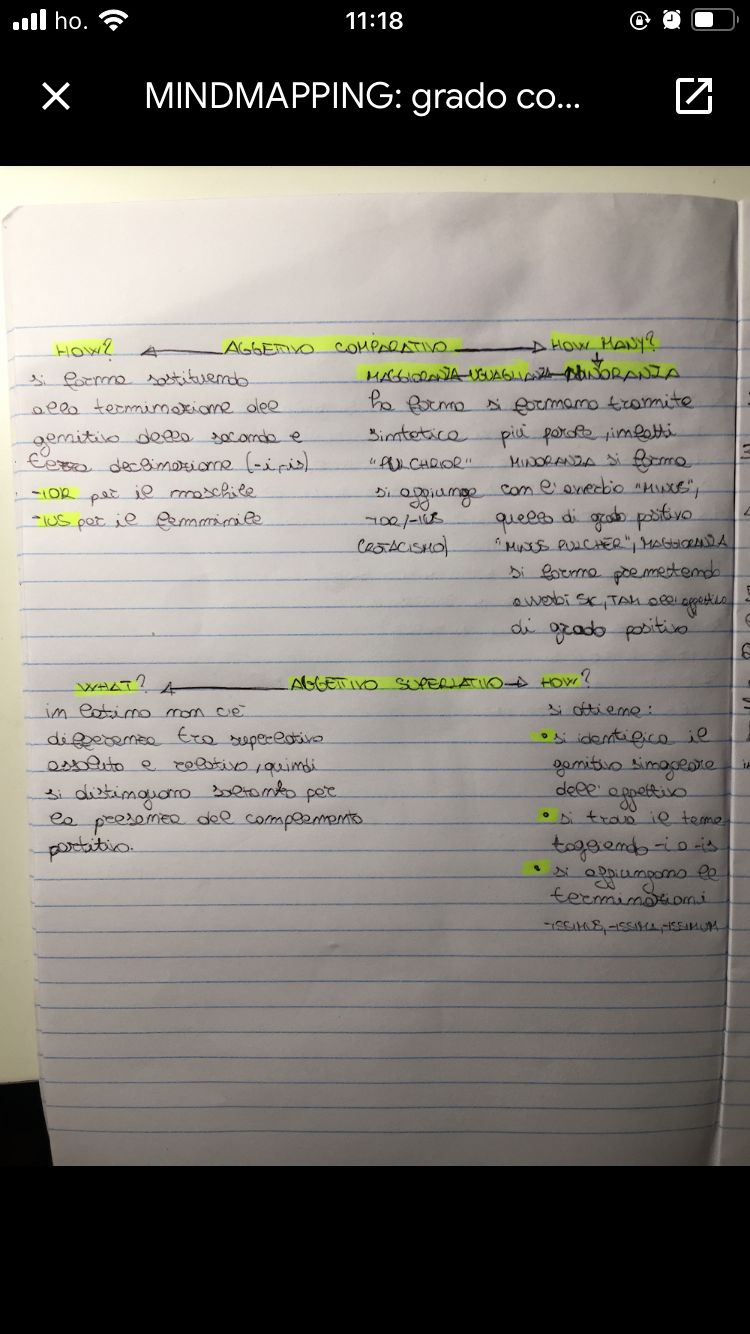 ho.
11:18
MINDMAPPING: grado co...
HOW? AGGETTIVO COMPARATIVO HOW MANY?
si forma sostituendo
alla terminazione del
genitivo della seconda e
terza declinazione (-i,-is)
-IOR per il maschile
-IUS per il femminile
MAGGIORANZA-UGUAGLIANZA-MINORANZA
ha forma
sintetica
"PULCHRIOR"
si aggiunge
-IOR/-IUS
(ROTACISMO)
si formano tramite
più parole, infatti
MINORANZA si forma
con l'avverbio "MINUS",
quello di grado positivo
"MINUS PULCHER", MAGGIORANZA
si forma premettendo
avverbi SIC, TAM all'aggettivo
di grado positivo
WHAT? AGGETTIVO SUPERLATIVO HOW?
in latino non c'è
differenza tra superlativo
assoluto e relativo, quindi
si distinguono soltanto per
la presenza del complemento
partitivo.
si ottiene:
• si identifica il
genitivo singolare
dell'aggettivo
• si trova il tema
togliendo -i o -is
• si aggiungono le
terminazioni
-ISSIMUS, -ISSIMA, -ISSIMUM